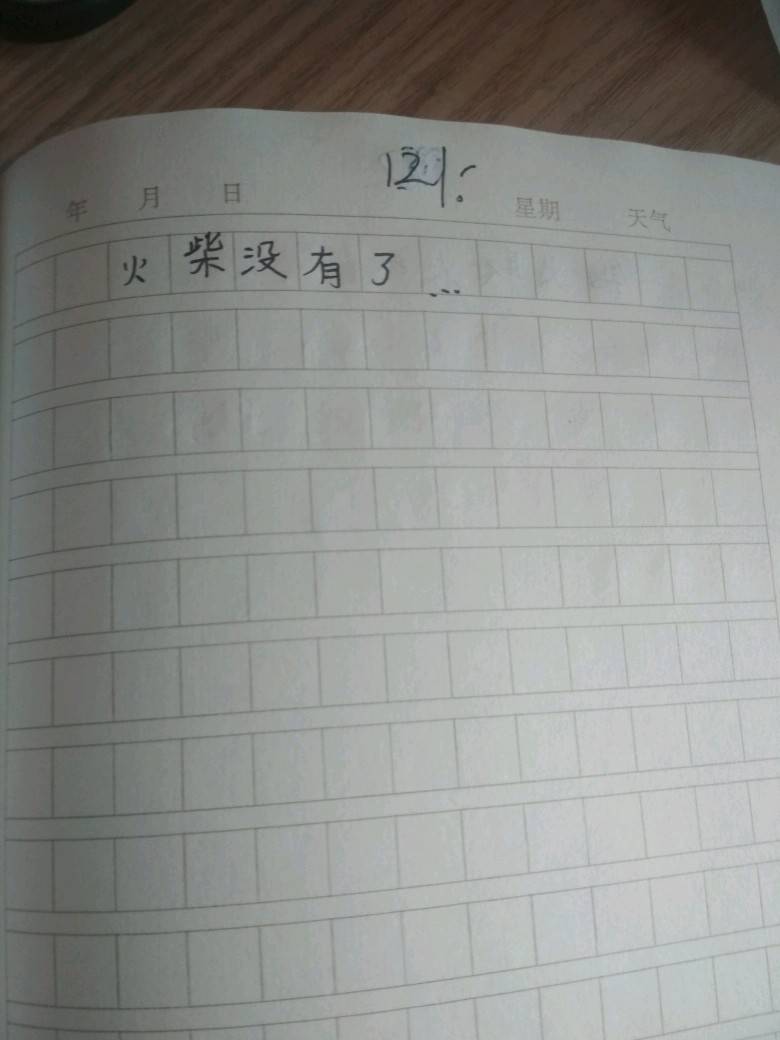 121:
年 月 日 星期 天气
火柴没有了...